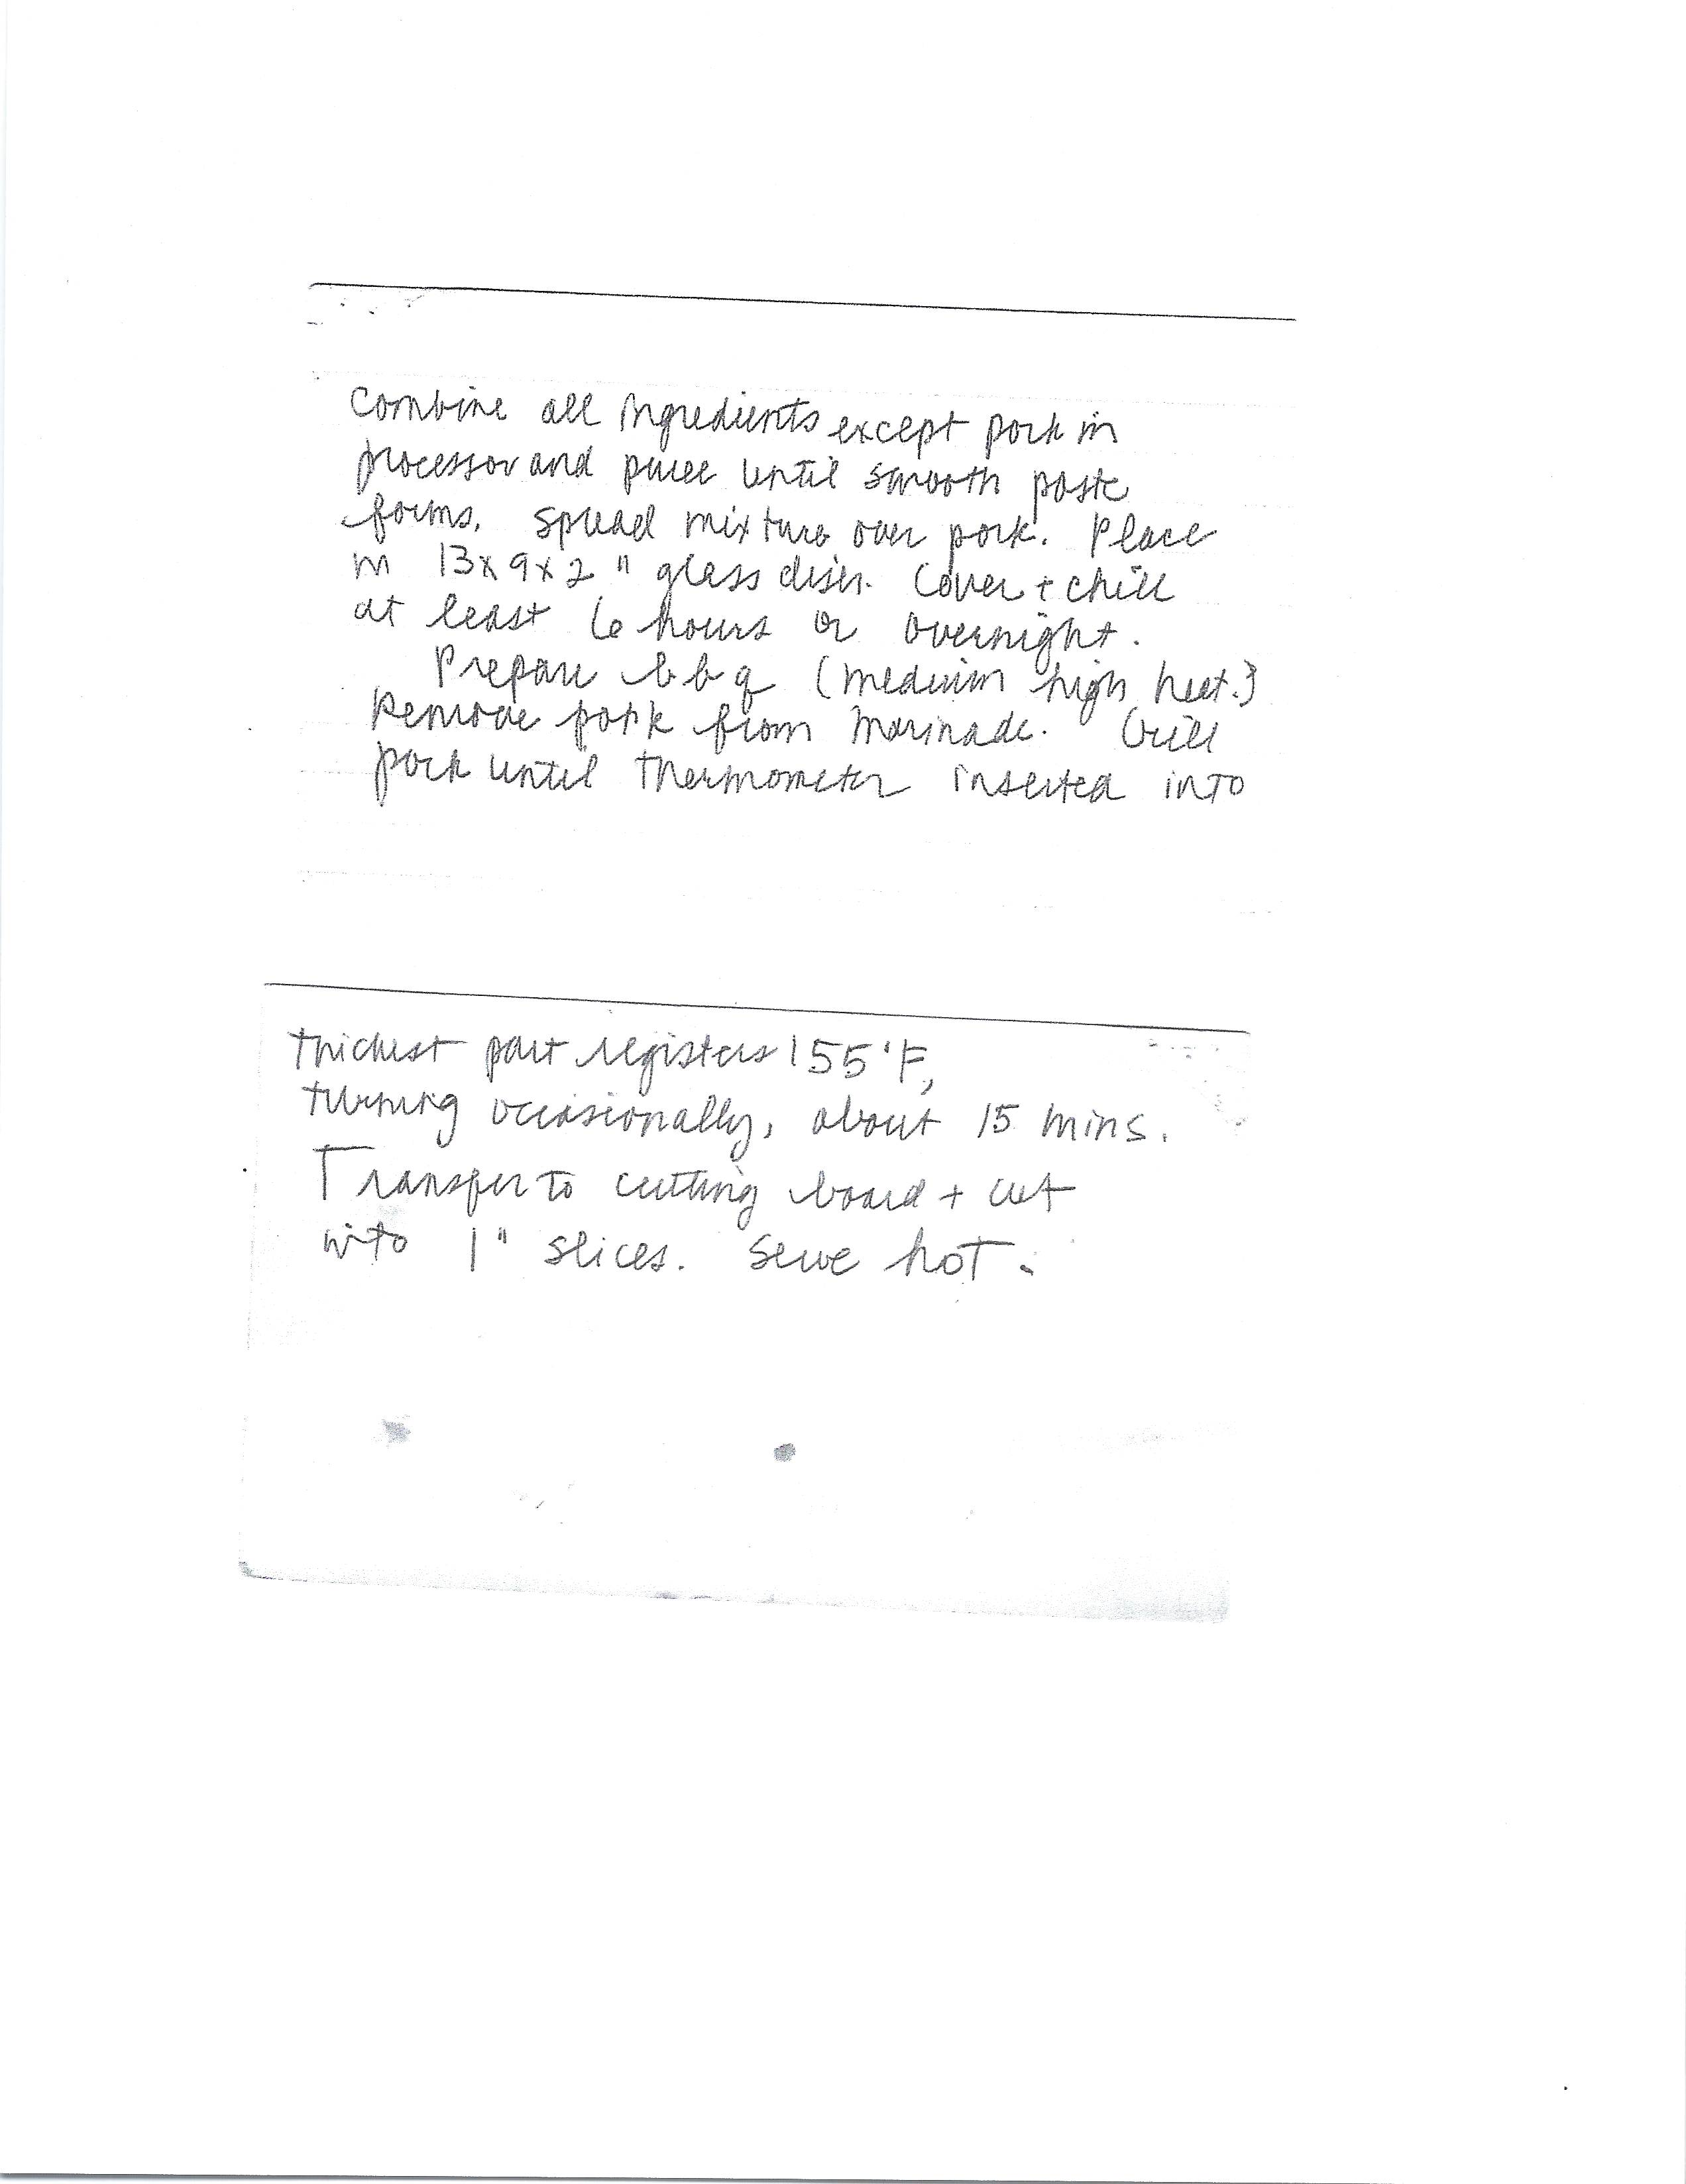 Combine all ingredients except pork in
processor and puree until smooth paste
forms. Spread mixture over pork. Place
in 13x9x2" glass dish. Cover + chill
at least 6 hours or overnight.
Prepare bbq (medium high heat.)
Remove pork from marinade. Grill
pork until thermometer inserted into
thickest part registers 155°F,
turning occasionally, about 15 mins.
Transfer to cutting board + cut
into 1" slices. Serve hot.